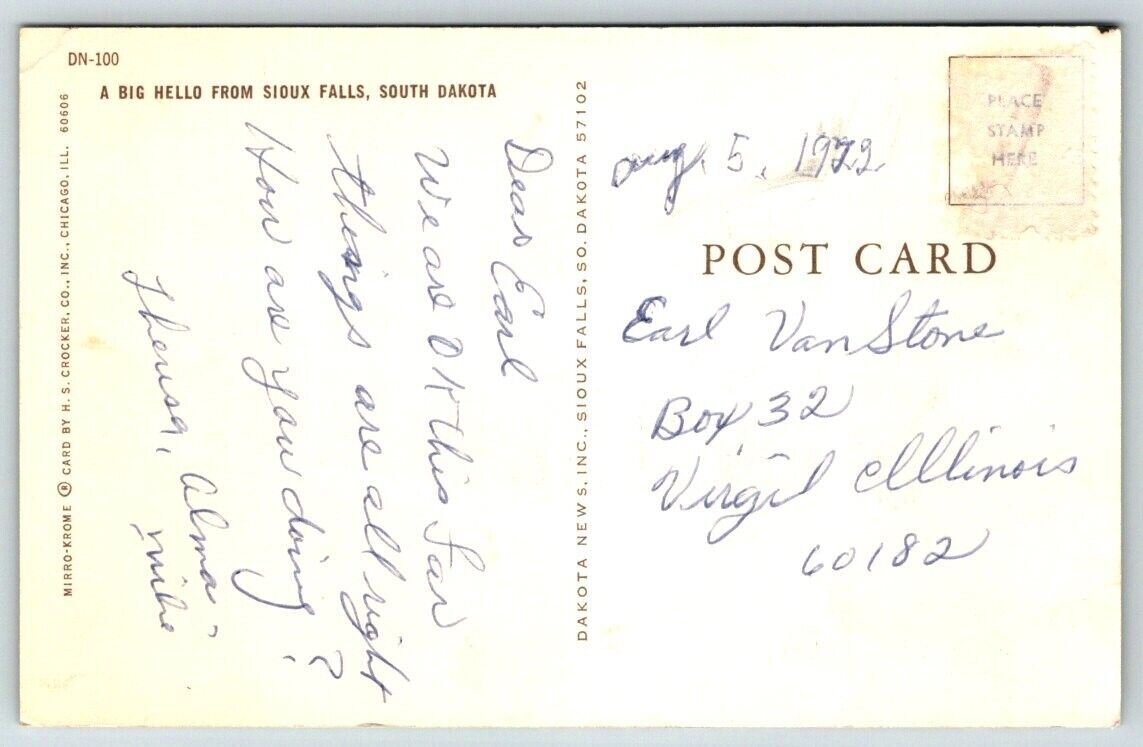 DN-100
A BIG HELLO FROM SIOUX FALLS, SOUTH DAKOTA
MIRRO-KROME ® CARD BY H. S. CROCKER, CO., INC., CHICAGO, ILL. 60606
Dear Earl
We are OK this far
things are all right
How are you doing?
Theresa, Alma
mike
DAKOTA NEWS, INC., SIOUX FALLS, SO. DAKOTA 57102
PLACE
STAMP
HERE
Aug. 5, 1972
POST CARD
Earl VanStone
Box 32
Virgil Illinois
60182